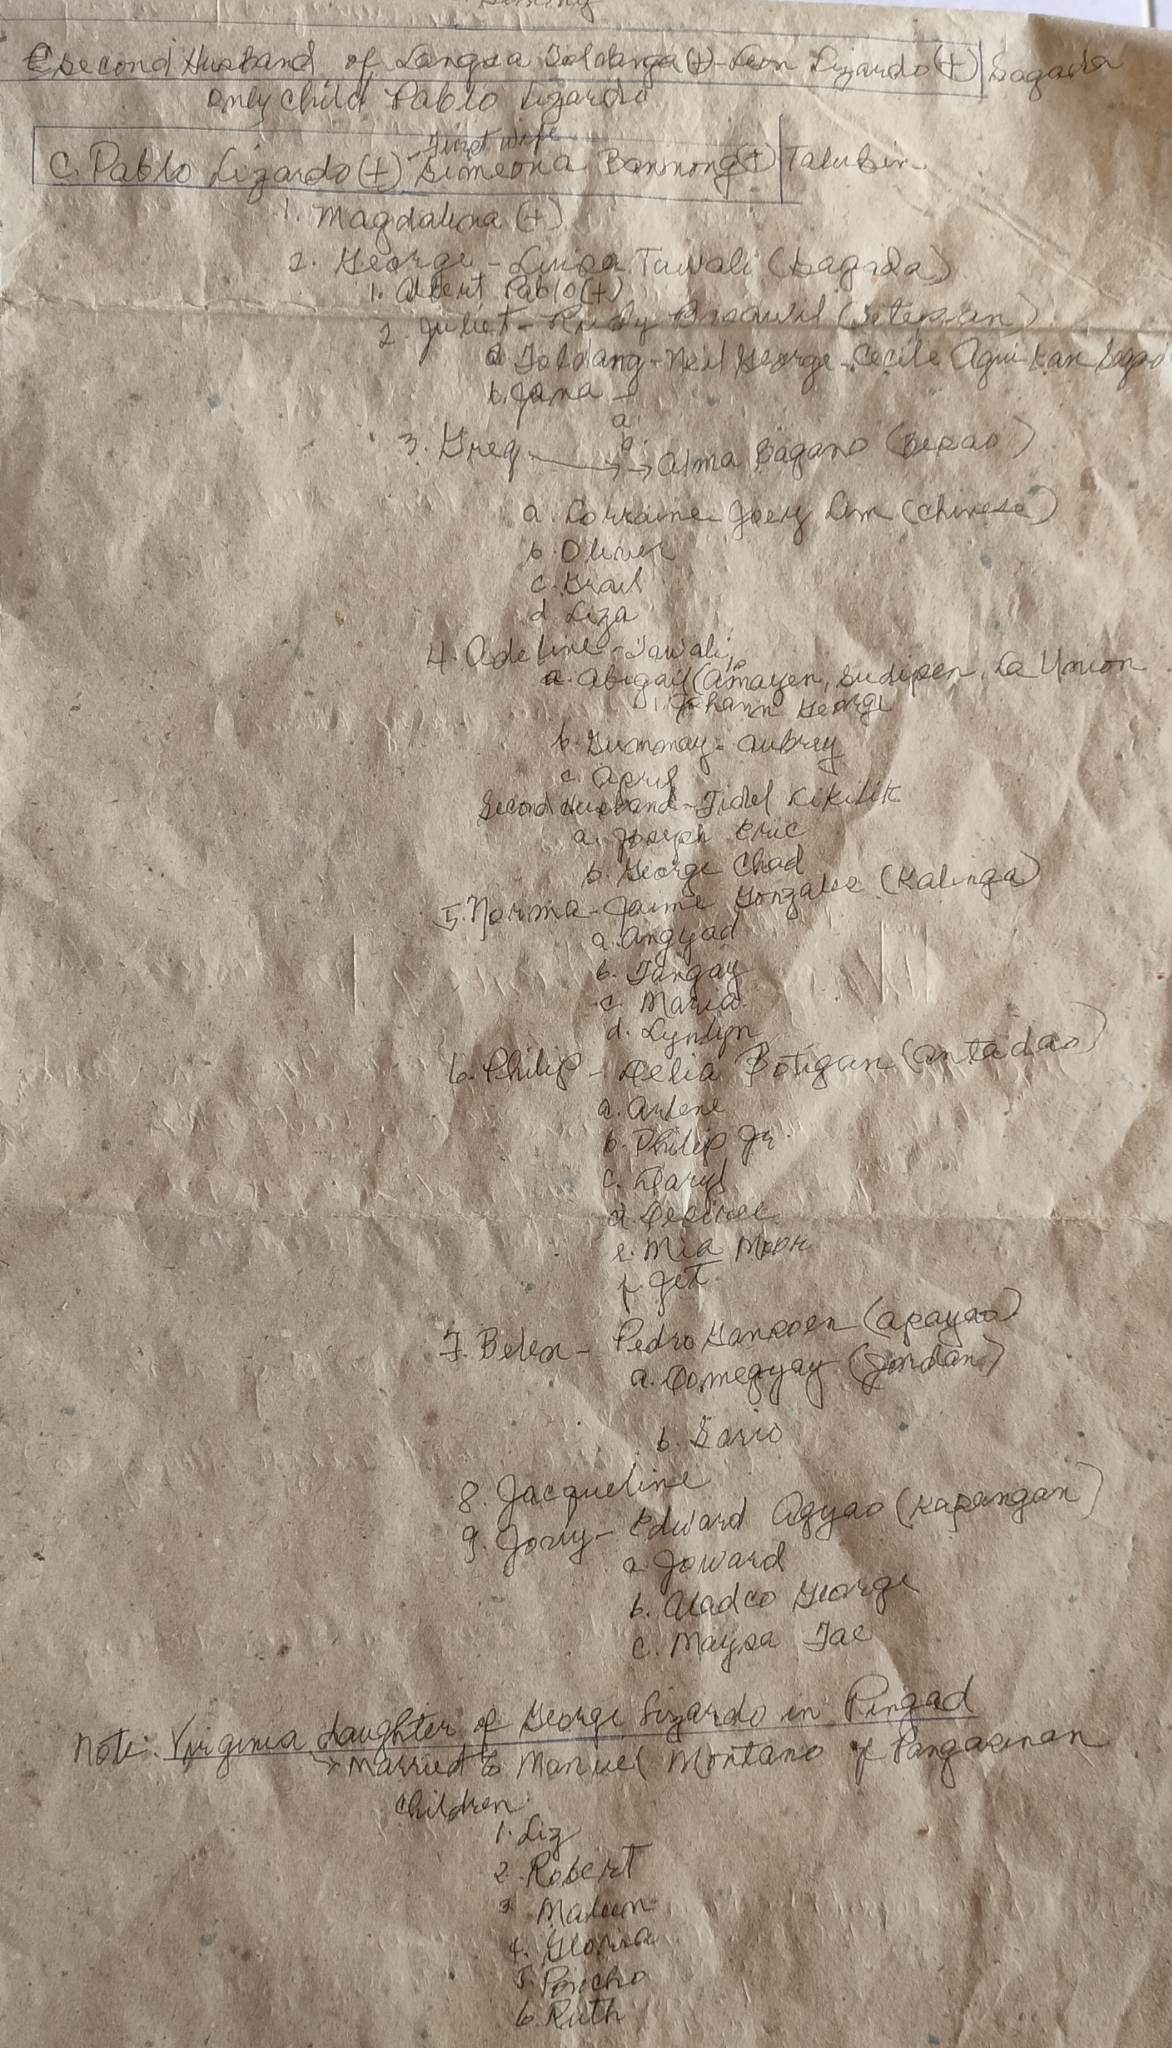 Second Husband of Langsa Toldanga (+) - Leon Lizardo (+) | Sagada
only child Pablo Lizardo
First wife
C. Pablo Lizardo (+) - Simeona Bannong (+) | Talubin
1. Magdalena (+)
2. George - Luisa Tawali (Sagada)
1. Albert Pablo (+)
2. Juliet - Rudy (
a. Toldang - Neil George - Cecile
b. Jana -
a.
a.
3. Greg → Alma Bagano (Besao)
a. Lorraine - Joey Lim (Chinese)
b. Oliver
c. Grail
d. Liza
4. Adeline - Tawali
a. Abigail (Amayen, Sudipen, La Union
1. Johann George
b. Gummay - Aubrey
c. April
Second Husband - Fidel Likilik
a. Joseph Eric
b. George Chad
5. Norma - Jaime Gonzales (Kalinga)
a. Angyad
b. Tangay
c. Maria
d. Lynlyn
6. Philip - Delia Botigan (Antadao)
a. Arlene
b. Philip Jr.
c. Daryl
d. Desiree
e. Mia
f. Jet
7. Belen - Pedro (Apayao)
a. Domegyay (Jordan)
b. Sario
8. Jacqueline
9. Jovy - Edward Agyao (Kapangan)
a. Joward
b. Aladco George
c. Maysa Jae
Note: Virginia daughter of George Lizardo in Pingad
→ Married to Manuel Montano of Pangasinan
Children:
1. Liz
2. Robert
3. Marlene
4. Gloria
5. Poncho
6. Ruth